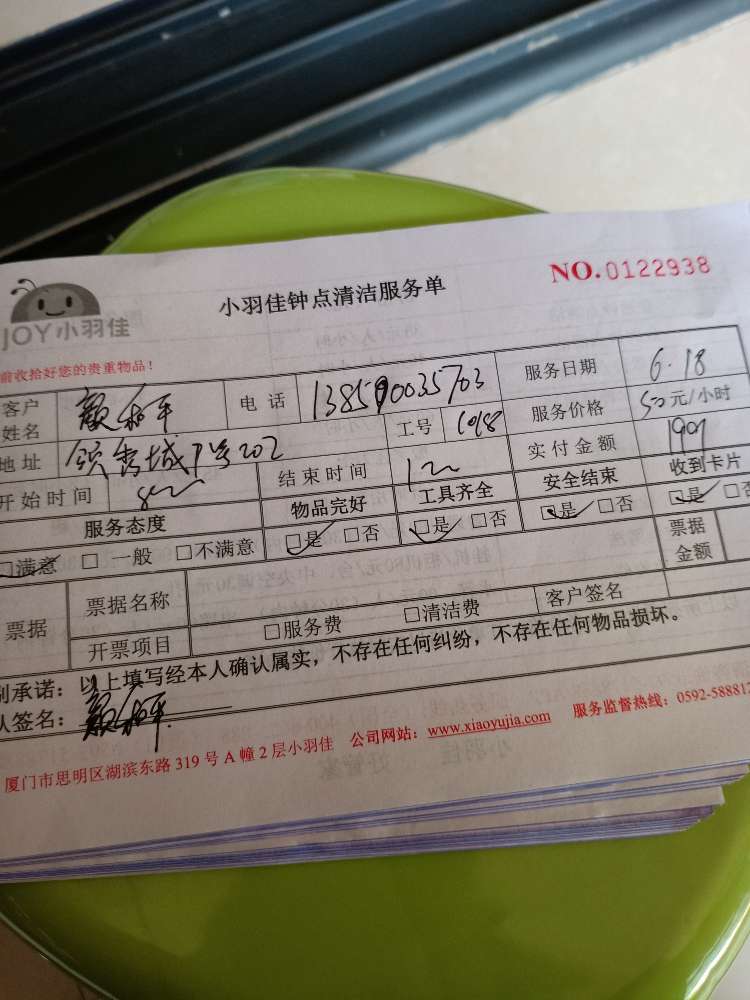 小羽佳钟点清洁服务单
NO.0122938
JOY小羽佳
前收拾好您的贵重物品!
客户姓名 颜和平 电话 138590035703 服务日期 6.18
地址 领秀城 202 工号 1098 服务价格 50元/小时
开始时间 结束时间 实付金额 190
服务态度 物品完好 工具齐全 安全结束 收到卡片
□满意 □一般 □不满意 □是 □否 □是 □否 □是 □否 □是 □
票据 票据名称 客户签名 票据金额
开票项目 □服务费 □清洁费
别承诺:以上填写经本人确认属实,不存在任何纠纷,不存在任何物品损坏。
人签名:颜和平
厦门市思明区湖滨东路319号A幢2层小羽佳 公司网站:www.xiaoyujia.com 服务监督热线:0592-588812